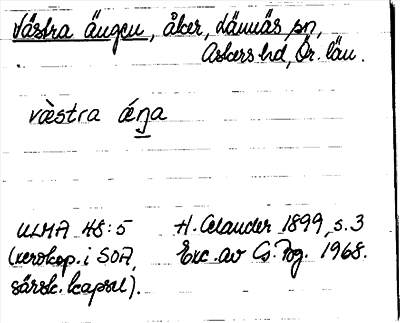 Västra ängen, åker, Lännäs sn,
Askers hd, Ör. län.
væ̀stra ǽŋa
ULMA 48:5 H. Celander 1899, s. 3
(xerokop. i SOA, Exc. av Cs. Bg. 1968.
särsk. kapsel).